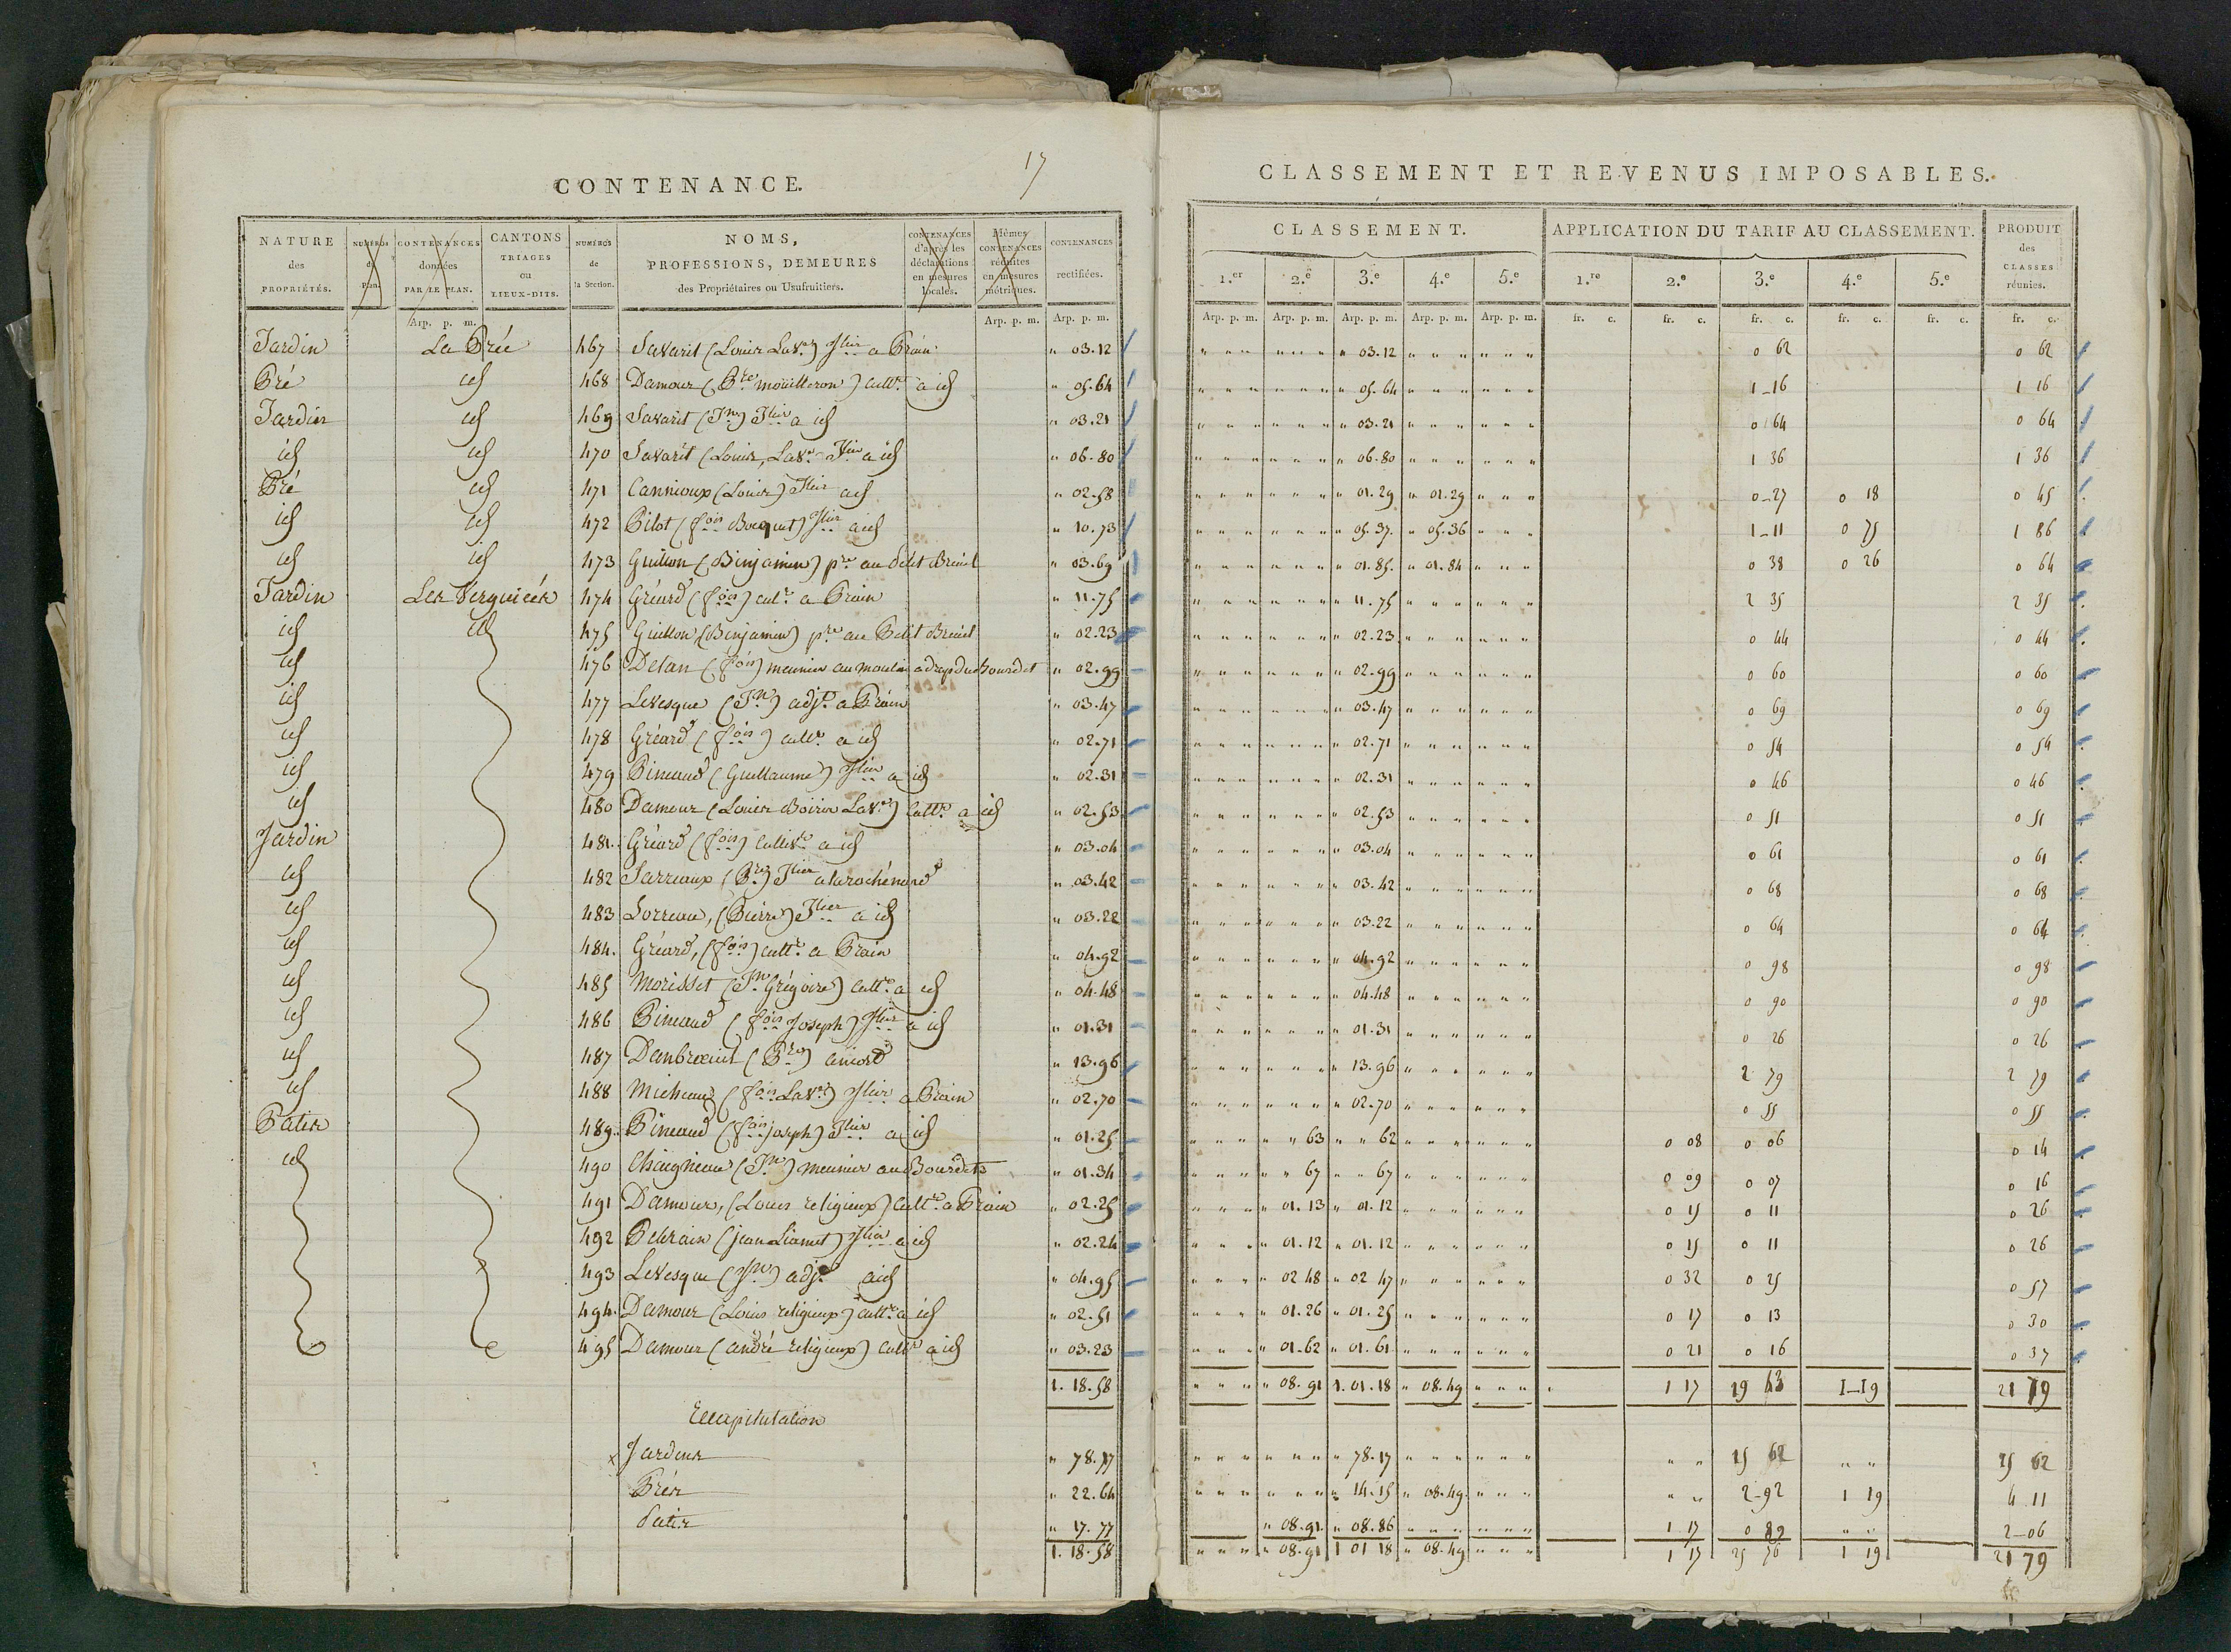 17
CONTENANCE.
NATURE des PROPRIÉTÉS. | NUMÉROS du Plan. | CONTENANCES données PAR LE PLAN. | CANTONS TRIAGES ou LIEUX-DITS. | NUMÉROS de la Section. | NOMS, PROFESSIONS, DEMEURES des Propriétaires ou Usufruitiers. | CONTENANCES d'après les déclarations en mesures locales. | Mêmes CONTENANCES réduites en mesures métriques. | CONTENANCES rectifiées.
Arp. p. m. | Arp. p. m. | Arp. p. m.
Jardin La Prée 467 Savarit (Louis Lav.) Jlier a Prain " 03.12
Pré id 468 Damour (Pre mouilleron) cultr. a id " 05.64
Jardin id 469 Savarit (Jn) Jlier a id " 03.21
id id 470 Savarit (Louis, Lav. Jlier a id " 06.80
Pré id 471 Cannioux (Louis) Jlier a id " 02.58
id id 472 Pilot (fois Bocquet) Jlier a id " 10.73
id id 473 Guillon (Binjamin) pre au Petit Breuil " 03.69
Jardin Les Vergnicés 474 Gréard (fois) cult. a Prain " 11.75
id id 475 Guillon (Binjamin) pre au Petit Breuil " 02.23
id 476 Delan (fois) meunier au moulin a drap du Bourdet " 02.99
id 477 Levesque (Jn) adjt. a Prain " 03.47
id 478 Gréard (fois) cultr. a id " 02.71
id 479 Pineaud (Guillaume) Jlier a id " 02.31
id 480 Damour (Louis Boirin Lav.) Cultr. a id " 02.53
Jardin 481. Gréard (fois) Cultivr. a id " 03.04
id 482 Sarreaux (Pre) Jlier a larochénard " 03.42
id 483 Sorreau, (Pierre) Jlier a id " 03.22
id 484. Gréard, (fois) cultr. a Prain " 04.92
id 485 Morisset (Jn Grégoire) Cultr. a id " 04.48
id 486 Pineaud (fois Joseph) Jlier a id " 01.31
id 487 Dambreuil (Pre) aniord " 13.96
id 488 Micheau (fois Lav.) Jlier a Prain " 02.70
Patis 489. Pineaud (fois joseph) Jlier a id " 01.25
id 490 Chaigneau (Jn) meunier au Bourdet " 01.34
491 Damour, (Louis religieux) Cultr. a Prain " 02.25
492 Pelrain (jean Liamet) Jlier a id " 02.24
493 Levesque (Jn) adjt. a id " 04.95
494. Damour (Louis religieux) cultr. a id " 02.51
495 Damour (andré religieux) cultr a id " 03.23
1.18.58
Recapitulation
x Jardins " 78.17
Prés " 22.64
Patis " 17.77
1.18.58
CLASSEMENT ET REVENUS IMPOSABLES.
CLASSEMENT. | APPLICATION DU TARIF AU CLASSEMENT. | PRODUIT des CLASSES réunies.
1.er | 2.e | 3.e | 4.e | 5.e | 1.re | 2.e | 3.e | 4.e | 5.e
Arp. p. m. | Arp. p. m. | Arp. p. m. | Arp. p. m. | Arp. p. m. | fr. c. | fr. c. | fr. c. | fr. c. | fr. c. | fr. c.
" 03.12 | 0 62 | 0 62
" 05.64 | 1-16 | 1 16
" 03.21 | 0 64 | 0 64
" 06.80 | 1 36 | 1 36
" 01.29 | " 01.29 | 0-27 | 0 18 | 0 45
" 05.37. | " 05.36 | 1-11 | 0 75 | 1 86
" 01.85. | " 01.84 | 0 38 | 0 26 | 0 64
" 11.75 | 2 35 | 2 35
" 02.23 | 0 44 | 0 44
" 02.99 | 0 60 | 0 60
" 03.47 | 0 69 | 0 69
" 02.71 | 0 54 | 0 54
" 02.31 | 0 46 | 0 46
" 02.53 | 0 51 | 0 51
" 03.04 | 0 61 | 0 61
" 03.42 | 0 68 | 0 68
" 03.22 | 0 64 | 0 64
" 04.92 | 0 98 | 0 98
" 04.48 | 0 90 | 0 90
" 01.31 | 0 26 | 0 26
" 13.96 | 2 79 | 2 79
" 02.70 | 0 55 | 0 55
" " 63 | " " 62 | 0 08 | 0 06 | 0 14
" " 67 | " " 67 | 0 09 | 0 07 | 0 16
" 01.13 | " 01.12 | 0 15 | 0 11 | 0 26
" 01.12 | " 01.12 | 0 15 | 0 11 | 0 26
" 02 48 | " 02 47 | 0 32 | 0 25 | 0 57
" 01.26 | " 01.25 | 0 17 | 0 13 | 0 30
" 01-62 | " 01.61 | 0 21 | 0 16 | 0 37
" 08.91 | 1.01.18 | " 08.49 | 1 17 | 19 43 | 1-19 | 21 79
" 78.17 | " " | 15 62 | " " | 15 62
" 14.15 | " 08.49 | " " | 2-92 | 1 19 | 4.11
" 08.91. | " 08.86 | 1 17 | 0 89 | " " | 2-06
" 08.91 | 1 01 18 | " 08.49 | 1 17 | 1 19 | 21 79